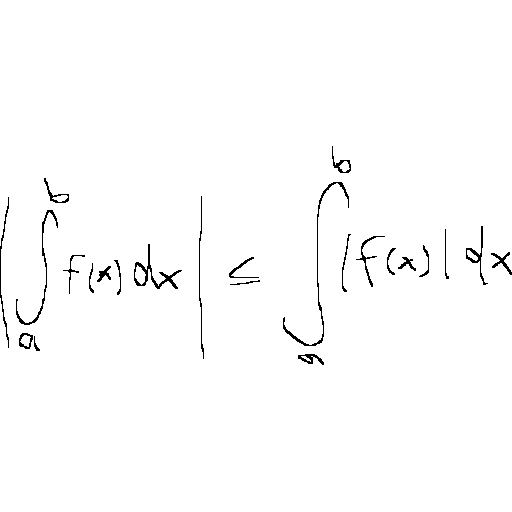 $\left| \int_a^b f(x) dx \right| \leq \int_a^b |f(x)| dx$